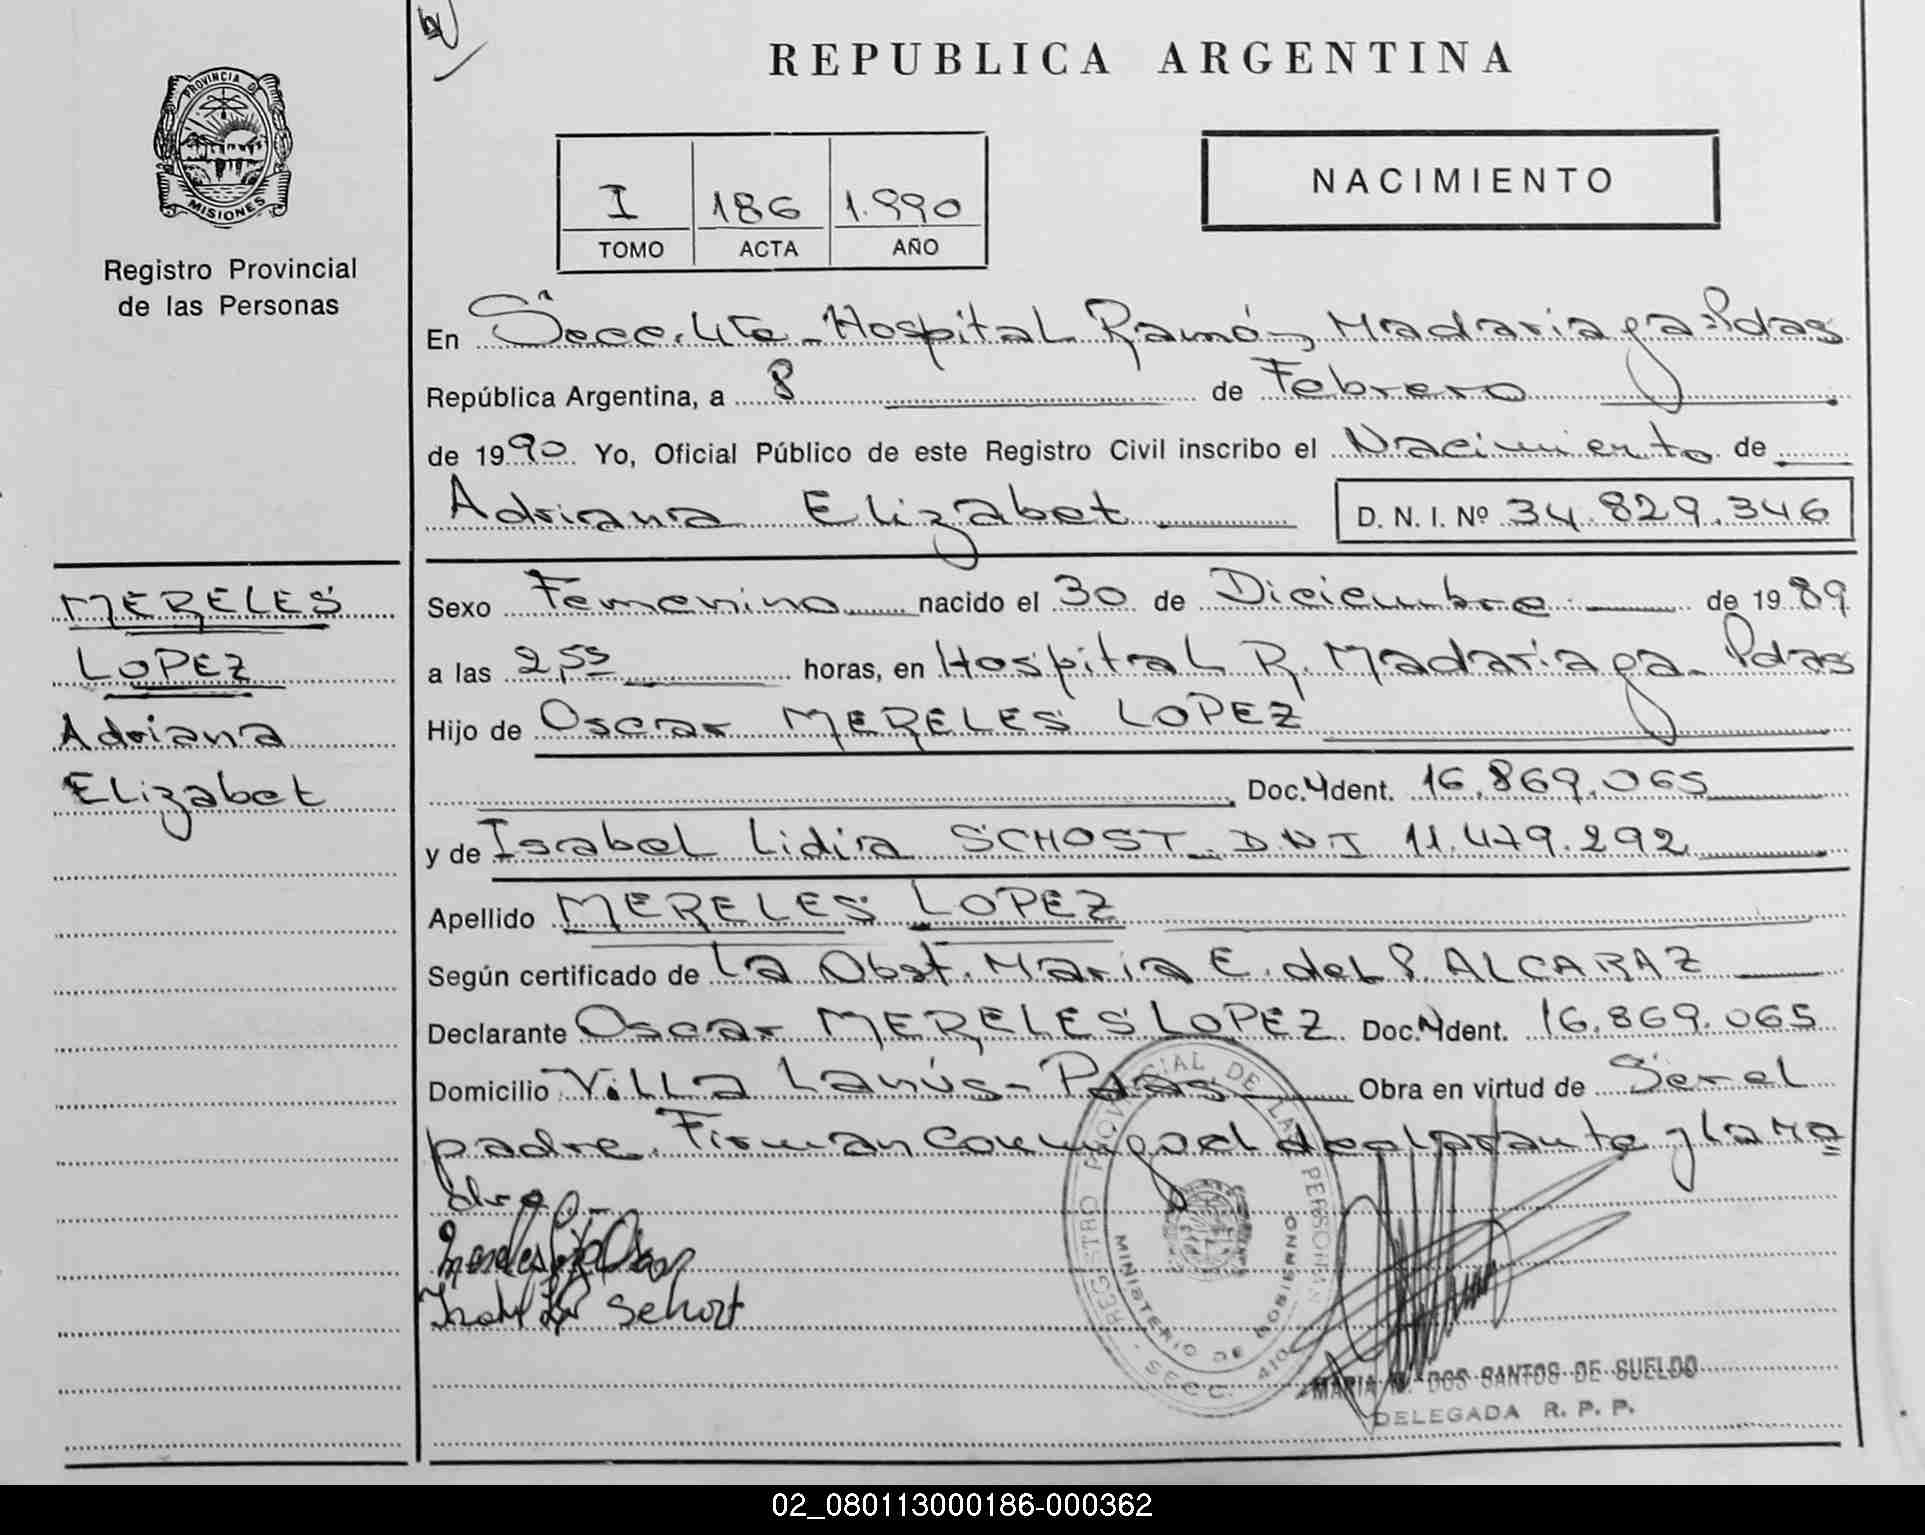 REPUBLICA ARGENTINA
PROVINCIA DE
MISIONES
Registro Provincial
de las Personas
I 186 1.990
TOMO ACTA AÑO
NACIMIENTO
En Secc. 4ta - Hospital Ramón Madariaga - Pdas
República Argentina, a 8 de Febrero
de 1990 Yo, Oficial Público de este Registro Civil inscribo el Nacimiento de
Adriana Elizabet D. N. I. Nº 34.829.346
MERELES
LOPEZ
Adriana
Elizabet
Sexo Femenino nacido el 30 de Diciembre de 1989
a las 2,55 horas, en Hospital R. Madariaga - Pdas
Hijo de Oscar MERELES LOPEZ
Doc. Ident. 16.869.065
y de Isabel Lidia SCHOST - D N I 11.479.292
Apellido MERELES LOPEZ
Según certificado de La Obst. Maria E. del P. ALCARAZ
Declarante Oscar MERELES LOPEZ Doc. Ident. 16.869.065
Domicilio Villa Lanús - Pdas Obra en virtud de Ser el
padre. Firman conmigo el declarante y la ma=
dre.-
Mereles Oscar
Schost
REGISTRO PROVINCIAL DE LAS PERSONAS
MINISTERIO DE GOBIERNO
SECC.
MARIA DOS SANTOS DE SUELDO
DELEGADA R. P. P.
02_080113000186-000362